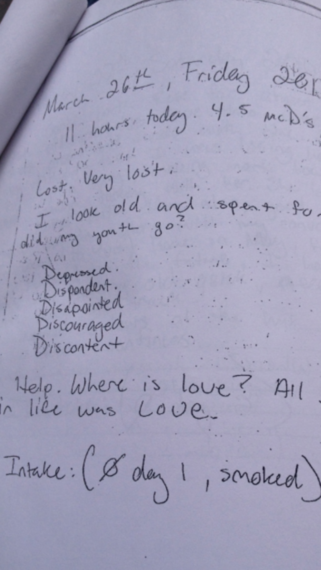 March 26th, Friday
11 hours today. 4.5 McD's
Lost. Very lost.
I look old and spent
did my youth go?
Depressed.
Dispondent.
Disapointed
Discouraged
Discontent
Help. Where is love? All
in life was Love.
Intake: (Ø day 1, smoked)